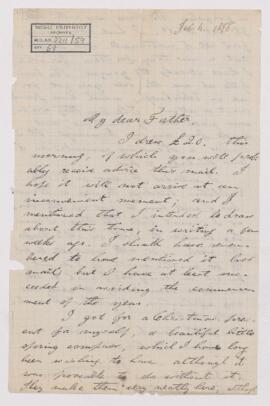 McGILL UNIVERSITY
ARCHIVES
ACC. NO. 2211/59
REF. 69
Feb 4. 1878
My dear Father,
I drew £20. this
morning, of which you will prob-
ably receive advice this mail. I
hope it will not arrive at an
inconvenient moment; and I
mentioned that I intended to draw
about this time, in writing a few
weeks ago. I should have remem-
bered to have mentioned it last
mail; but I have at last suc-
ceeded in avoiding the commence-
ment of the year.
I got for a Christmas pres-
ent for myself, a beautiful little
spring compass, which I have long
been wishing to have although it
was possible to do without it.
They make them very neatly here,